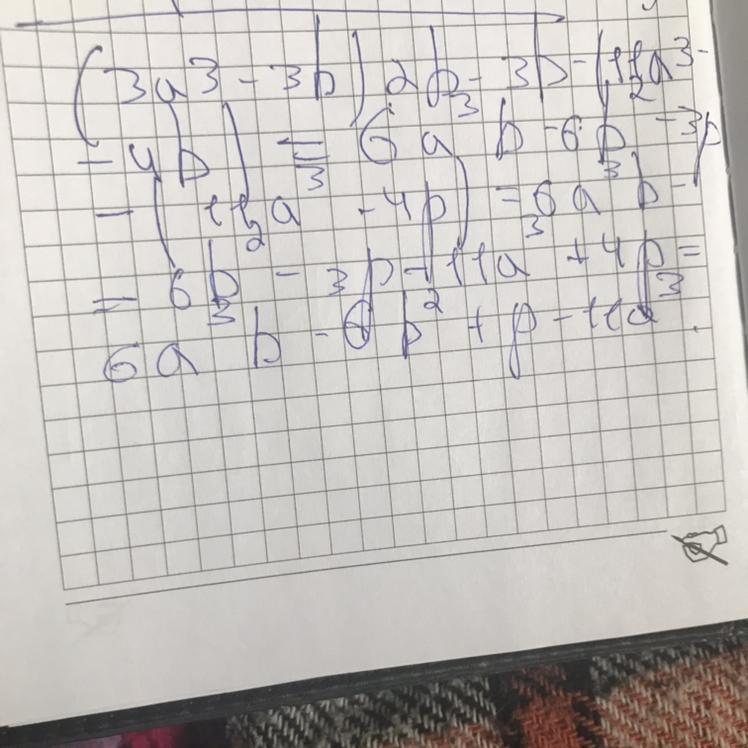 (3a³ - 3b) 2b - 3b - (11a³ -
- 4b) = 6a³b - 6b² - 3b
- (11a³ - 4b) = 6a³b -
= 6b² - 3b - 11a³ + 4b =
6a³b - 6b² + b - 11a³